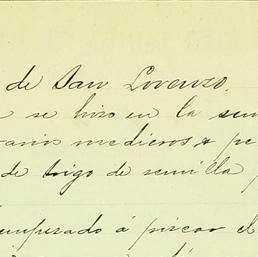 de San Lorenzo.
se hizo en la sem
arios medieros, & pe
de trigo de semilla
emperado á piscar el